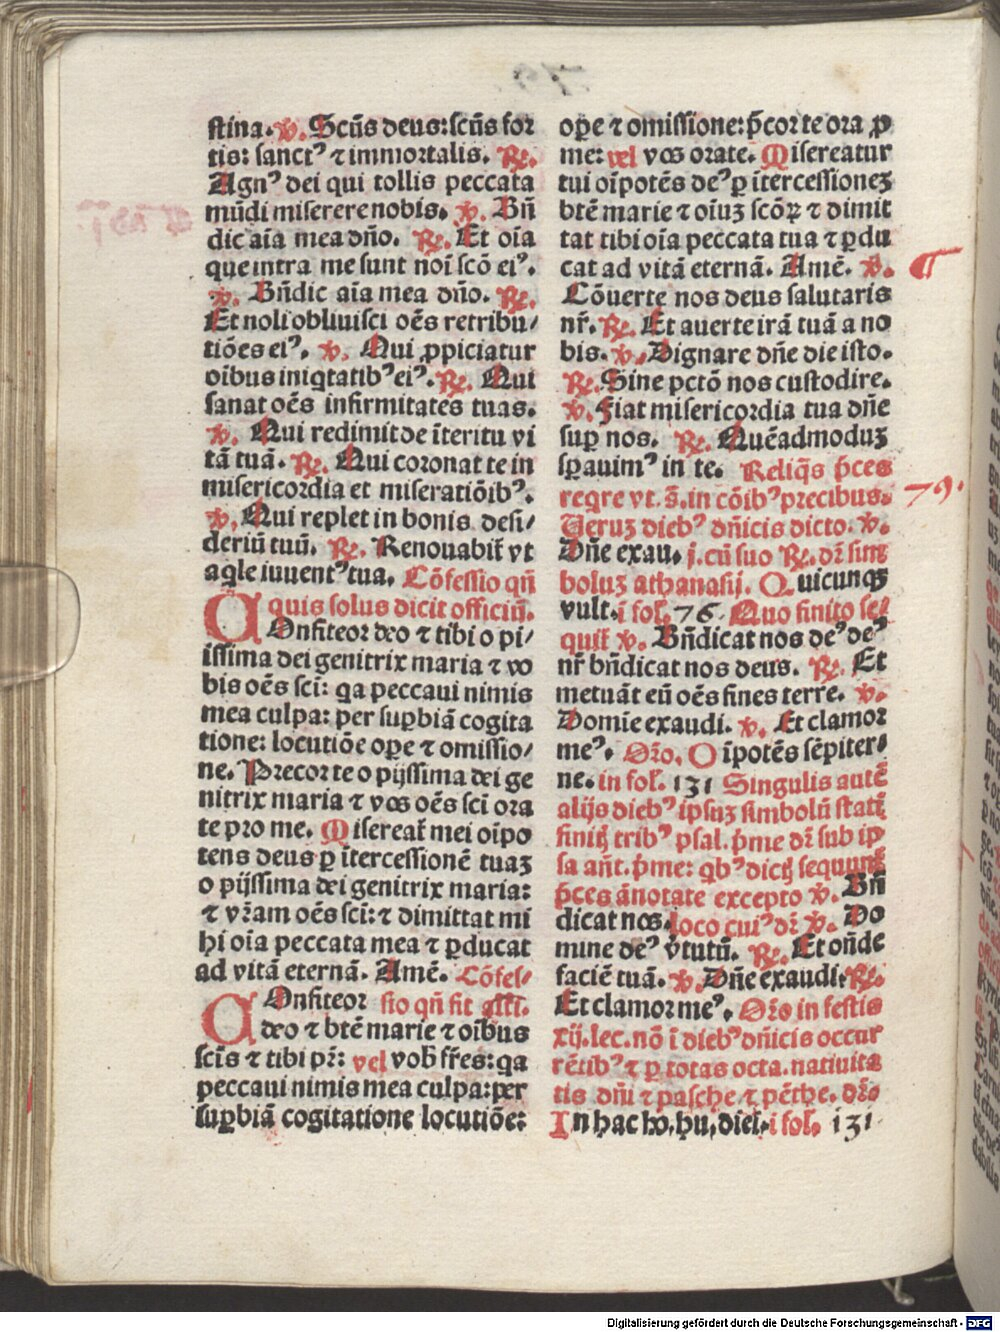 stina. ꝟ. Scūs deus: scūs for
tis: sanctꝰ ⁊ immortalis. ℟.
Agnꝰ dei qui tollis peccata
mūdi miserere nobis. ꝟ. Bn̄
dic aīa mea dn̄o. ℟. Et oīa
que intra me sunt noī scō eiꝰ.
ꝟ. Bn̄dic aīa mea dn̄o. ℟.
Et noli obliuisci oēs retribu/
tiōes eiꝰ. ꝟ. Qui ꝓpiciatur
oībus iniqtatibꝰ eiꝰ. ℟. Qui
sanat oēs infirmitates tuas.
ꝟ. Qui redimit de īteritu vi
tā tuā. ℟. Qui coronat te in
misericordia et miseratiōibꝰ.
ꝟ. Qui replet in bonis desi/
deriū tuū. ℟. Renouabit̄ vt
aqle iuuentꝰ tua. Cōfessio qn̄
quis solus dicit officiū.
COnfiteor deo ⁊ tibi o pi/
issima dei genitrix maria ⁊ vo
bis oēs sci̅: qa peccaui nimis
mea culpa: per suꝑbiā cogita
tione: locutiōe oꝑe ⁊ omissio/
ne. Precor te o pijssima dei ge
nitrix maria ⁊ vos oēs sci̅ ora
te pro me. Misereat̄ mei oīpo
tens deus ꝑ ītercessionē tuaꝫ
o pijssima dei genitrix maria:
⁊ vr̄am oēs sci̅: ⁊ dimittat mi
hi oīa peccata mea ⁊ ꝑducat
ad vitā eternā. Amē. Cōfes/
COnfiteor sio qn̄ fit
deo ⁊ btē marie ⁊ oībus
scīs ⁊ tibi pr̄: vel vob̄ fr̄es: qa
peccaui nimis mea culpa: per
suꝑbiā cogitatione locutiōe:
oꝑe ⁊ omissione: p̄cor te ora ꝓ
me: vel vos orate. Misereatur
tui oīpotēs deꝰ ꝑ ītercessioneꝫ
btē marie ⁊ oīuꝫ scōꝝ ⁊ dimit
tat tibi oīa peccata tua ⁊ ꝑdu
cat ad vitā eternā. Amē. ꝟ. ¶
Cōuerte nos deus salutaris
nr̄. ℟. Et auerte irā tuā a no
bis. ꝟ. Dignare dn̄e die isto.
℟. Sine pctō nos custodire.
ꝟ. Fiat misericordia tua dn̄e
suꝑ nos. ℟. Quēadmoduꝫ
sꝑauimꝰ in te. Reliq̄s p̄ces
reqre vt. s̄. in cōibꝰ precibus. 79.
Veruꝫ diebꝰ dn̄icis dicto. ꝟ.
Dn̄e exau. j. cū suo ℟. dr̄ sim
boluꝫ athanasij. Quicunqꝫ
vult. i fol. 76. Quo finito se/
quit̄ ꝟ. Bn̄dicat nos deꝰ deꝰ
nr̄ bn̄dicat nos deus. ℟. Et
metuāt eū oēs fines terre. ꝟ.
Domīe exaudi. ꝟ. Et clamor
meꝰ. Or̄o. Oīpotēs sēpiter/
ne. in fol. 131 Singulis autē
alijs diebꝰ ipsuꝫ simbolū statī
finitꝭ tribꝰ psal. p̄me dr̄ sub ip
sa an̄t. p̄me: qbꝰ dictꝭ sequunt̄
p̄ces ānotate excepto ꝟ. Bn̄
dicat nos. loco cuiꝰ dr̄ ꝟ. Do
mine deꝰ v̄tutū. ℟. Et on̄de
faciē tuā. ꝟ. Dn̄e exaudi. ℟.
Et clamor meꝰ. Or̄o in festis
xij. lec. nō ī diebꝰ dn̄icis occur
rētibꝰ ⁊ ꝑ totas octa. natiuita
tis dn̄i ⁊ pasche ⁊ pēthe. Or̄o
In hac ho. hu. diei. i fol. 131
Digitalisierung gefördert durch die Deutsche Forschungsgemeinschaft - DFG